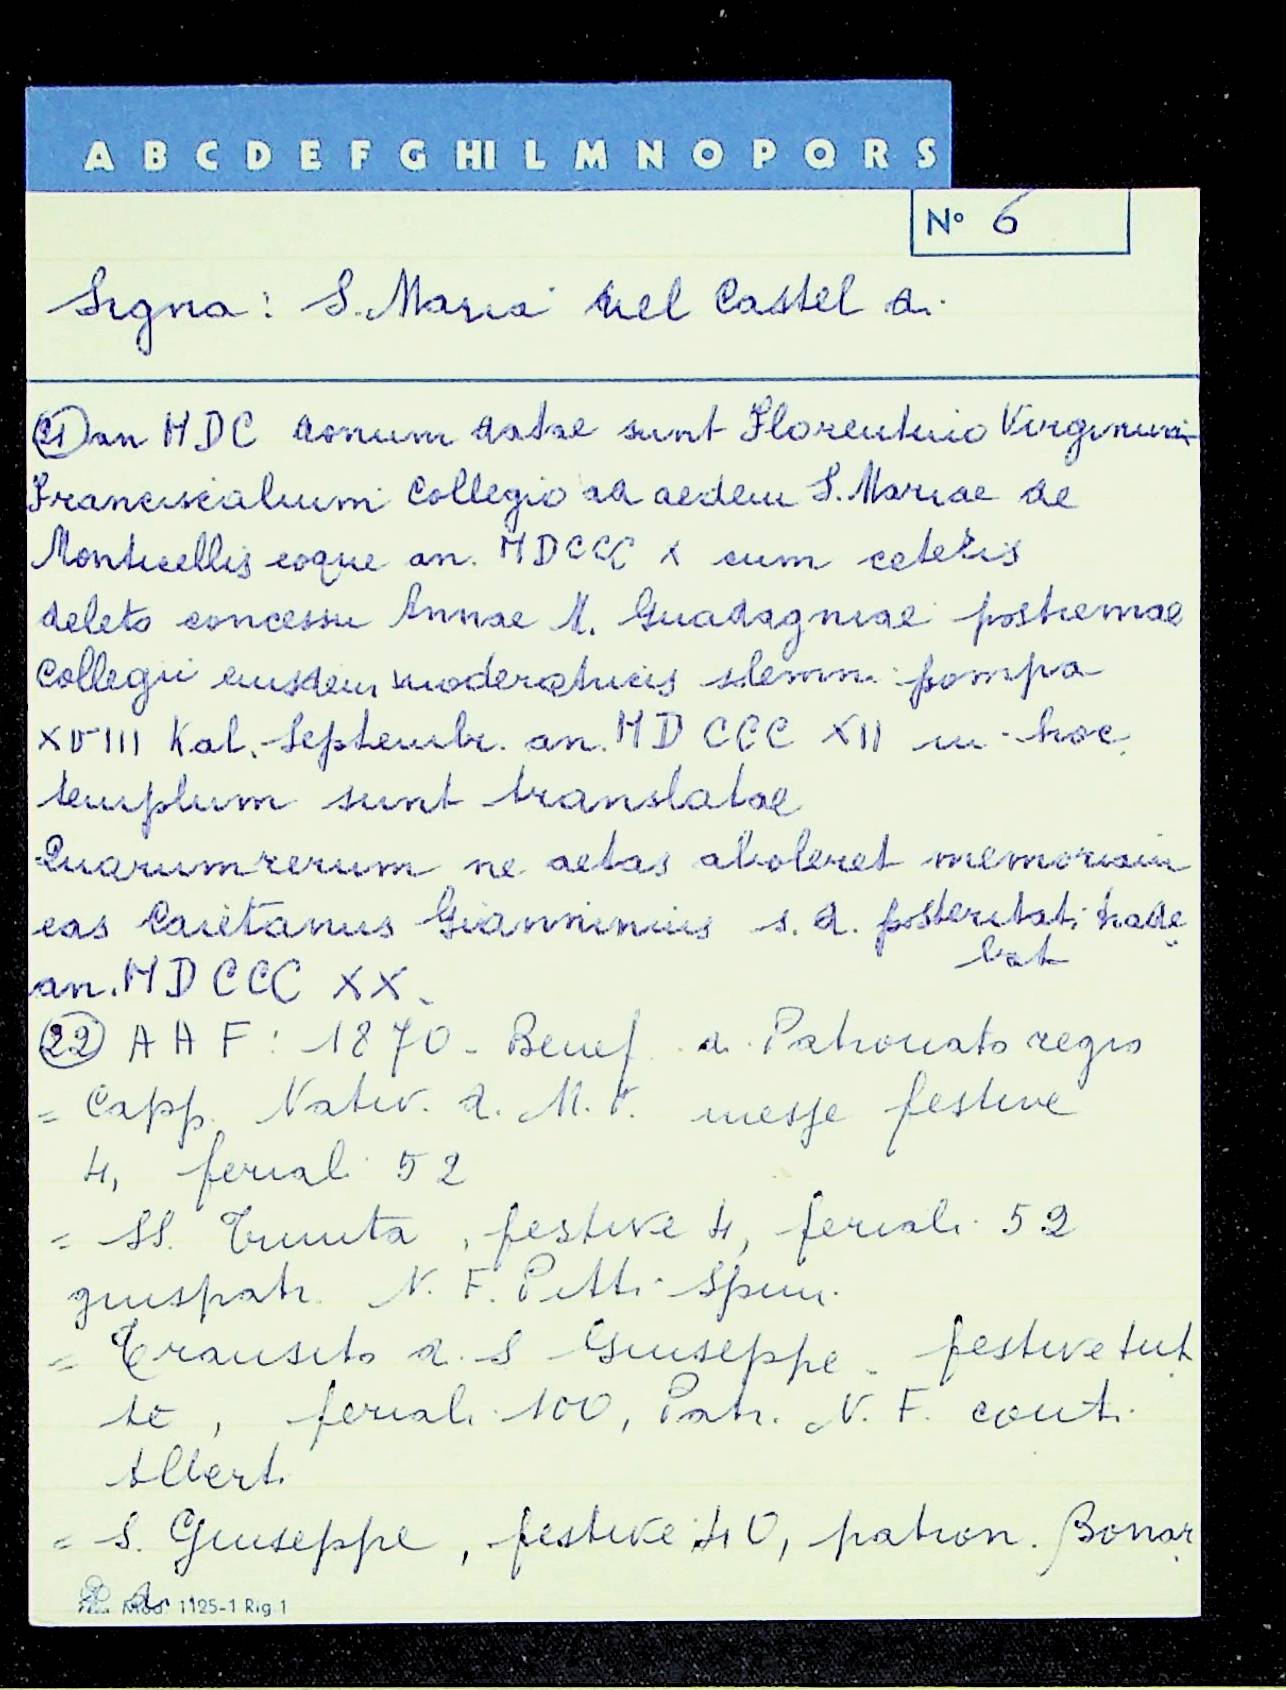 A B C D E F G HI L M N O P Q R S
N° 6
Signa: S. Maria nel Castel di
21) an MDC donum datae sunt Florentino Virginum
Franciscalium Collegio ad aedem S. Mariae de
Monticellis eoque an. MDCCC X cum ceteris
deleto concessu Annae M. Guadagniae postremae
Collegii eiusdem moderatricis slemn. pompa
XVIII Kal. Septembr. an. MD CCC XII in hoc
templum sunt translatae
Quarumrerum ne aetas aboleret memoriam
eas Caietanus Gianninius s. d. posteritati trade
bat
an. MD CCC XX.
22) A A F: 1870 - Benef. di Patronato regio
= Capp. Nativ. d. M. V. messe festive
4, feriali 52
= SS. Trinita, festive 4, feriali 52
giuspatr. N. F. Pitti Spini
= Transito di S Giuseppe - festive tut
te, feriali 100, Patr. N. F. conti
Alberti
= S. Giuseppe, festive 40, patron. Bonar
Mod 1125-1 Rig 1